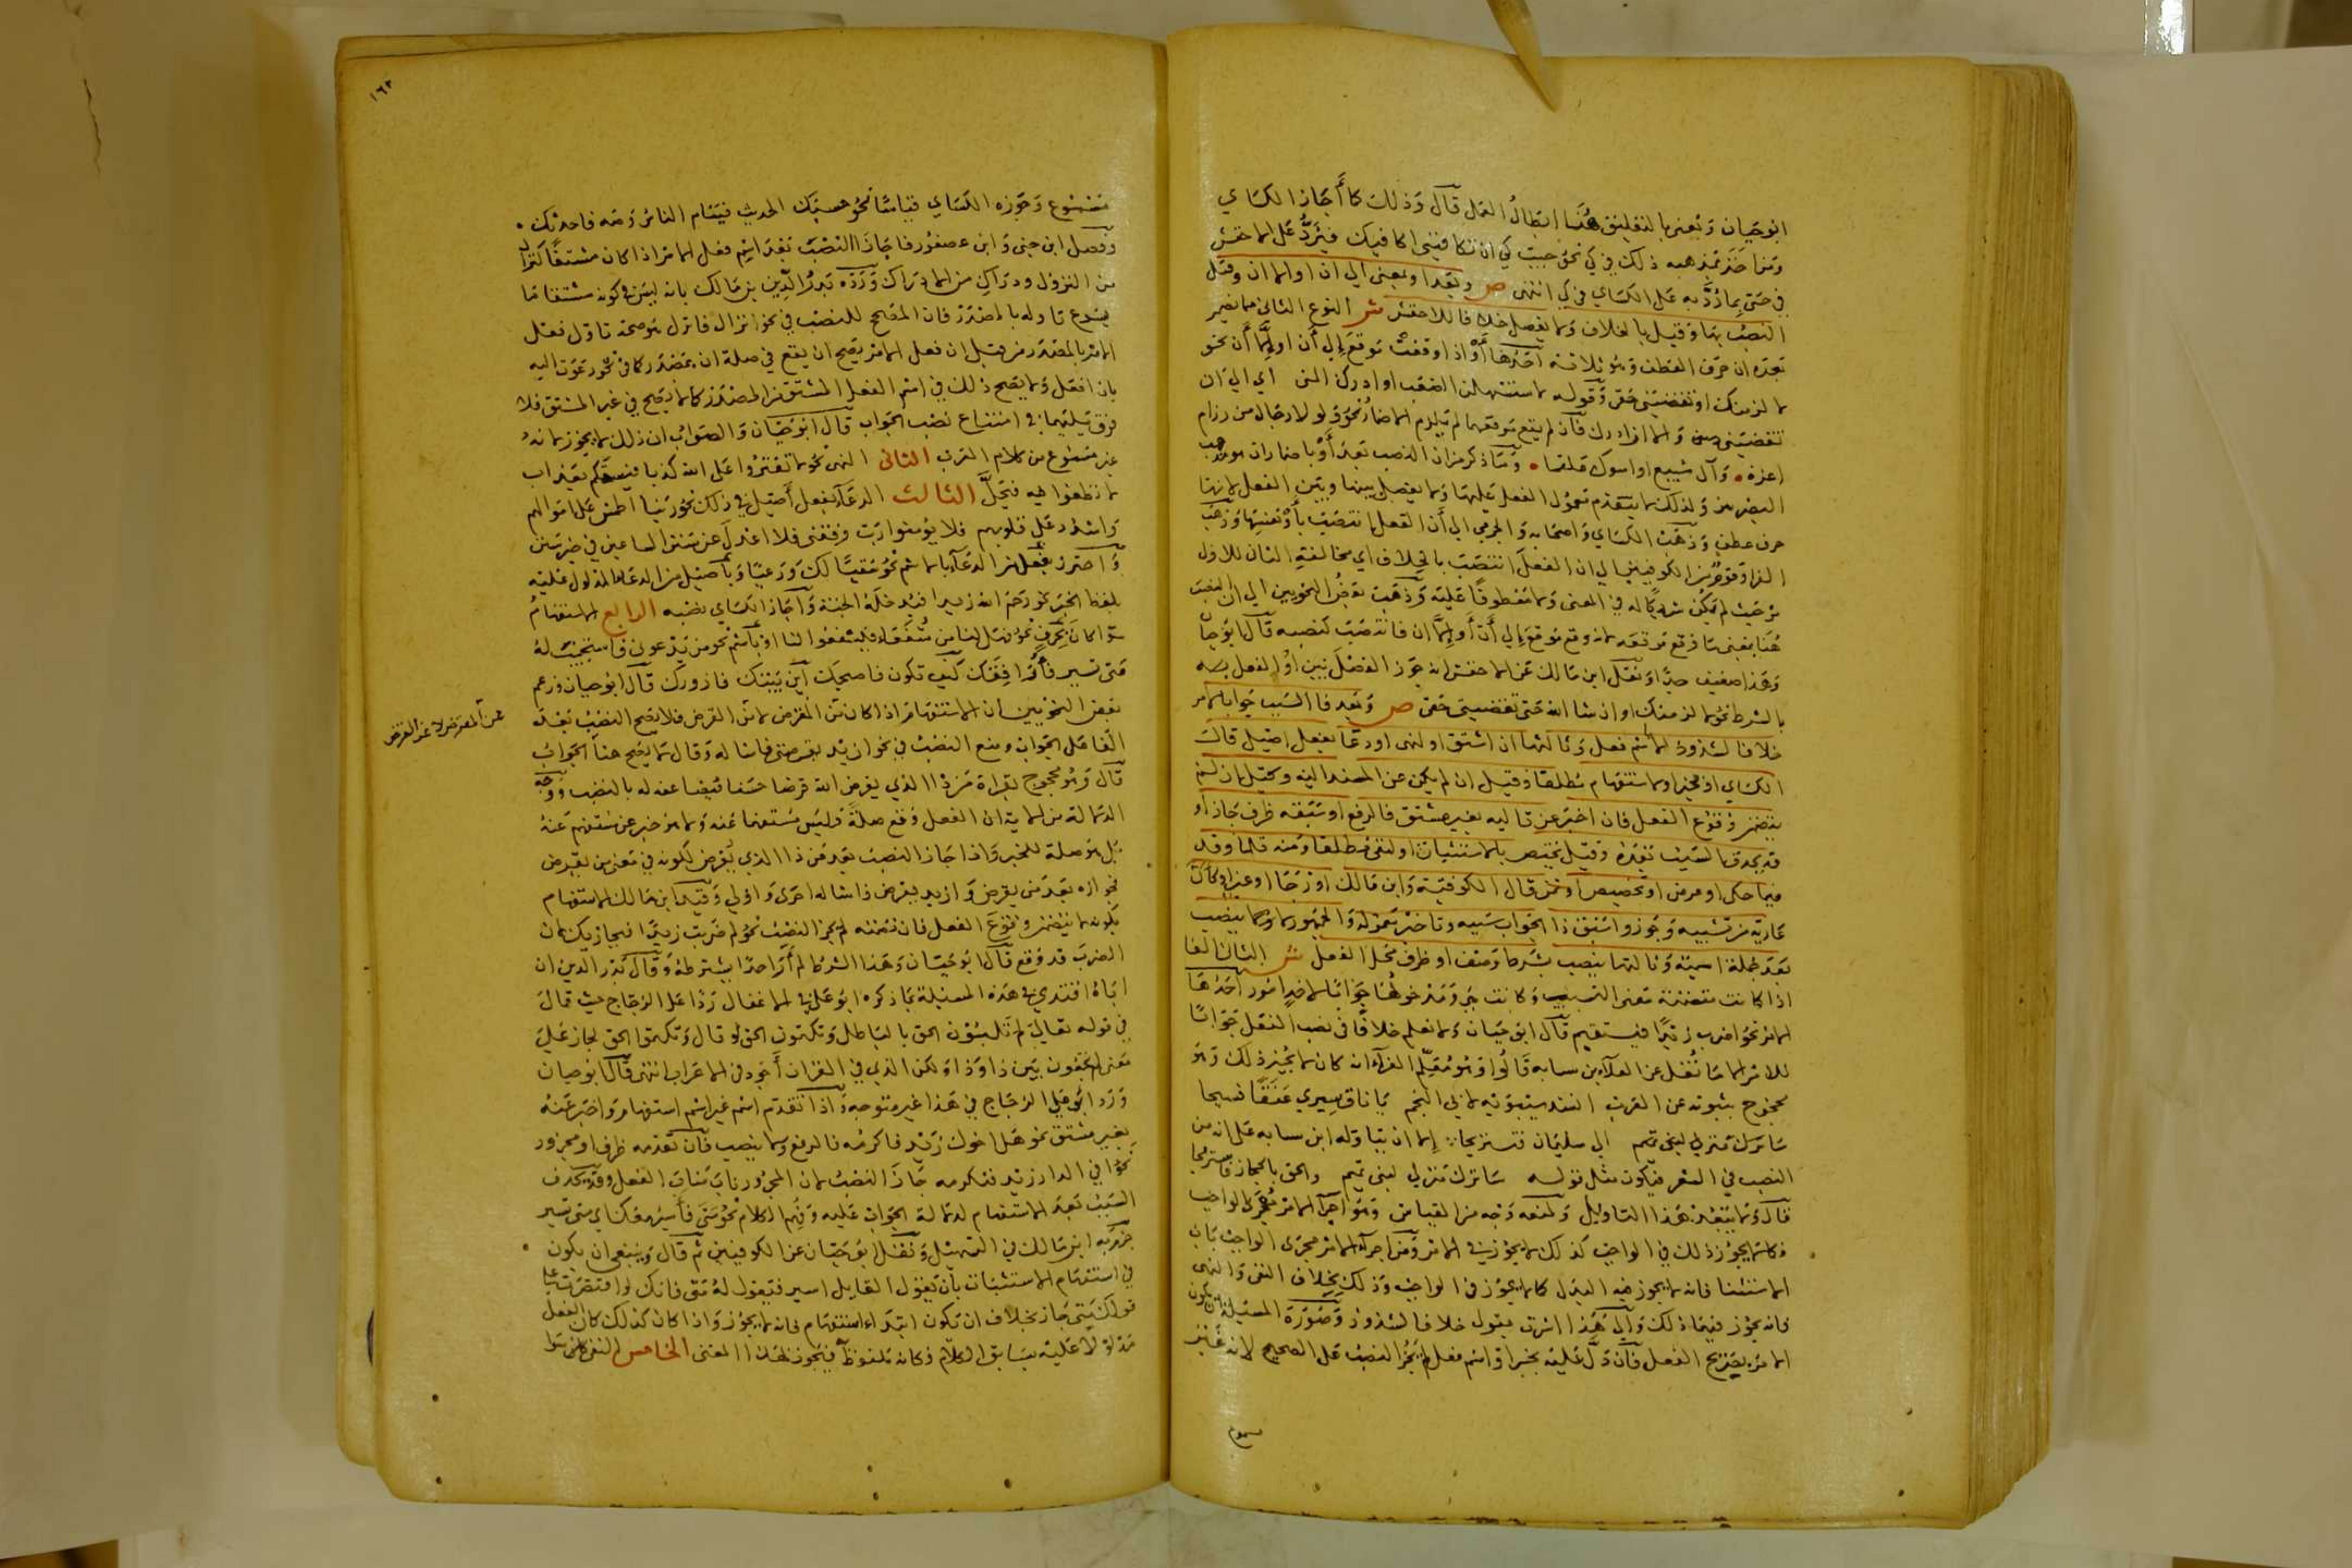 ابو حيان ويعني بالتعليق هنا ابطال العمل قال وذلك كما أجاز الكساي
ومنا خذ تمذهبه ذلك في كي نحو جيت كي ان تكافيني اكافيك فيرد على الاخفش
في حتى بما رد به على الكساي في كي انتهى ص وبعد او بمعنى الى ان او الا ان وقيل
النصب بها وقيل بالخلاف ولا يفصل خلافا للاخفش ش النوع الثاني مما يضمر
بعده ان حرف العطف وهو ثلاثة احدها أو اذا وقعت موقع إلى أن او إلا أن نحو
لا لزمنك او تقضيني حقي وقوله لاستسهلن الصعب او ادرك المنى اي الى ان
تقضيني والى ان ادرك فان لم يقع موقعهما لم يلزم الاضمار نحو ولولا رجال من رزام
اعزة وآل سبيع او اسوك علقما وما ذكر من ان النصب بعد أو باضمار ان هو مذهب
البصريين ولذلك لا يتقدم معمول الفعل عليها ولا يفصل بينها وبين الفعل لانها
حرف عطف وذهب الكساي واصحابه والجرمي الى أن الفعل انتصب بأو نفسها وذهب
الفرا وقوم من الكوفيين الى ان الفعل انتصب بالخلاف اي مخالفة الثاني للاول
من حيث لم يكن شريكا له في المعنى ولا معطوفا عليه وذهب بعض النحويين الى ان النصب
هنا بمعنى ما وقع موقعه لانه وقع موقع إلى أن أو إلا ان فانتصب كنصبه قال ابو حيان
وهذا ضعيف جدا ونقل ابن مالك عن الاخفش انه جوز الفصل بين او والفعل بـه
بالشرط نحو لالزمنك او ان شا الله حتى تقضيني حقي ص وبعد فا السبب جوابا لامر
خلافا لشذوذ لا اسم فعل وثالثها ان اشتق او نهى او دعا بفعل اصيل قال
الكساي او بخبر او استفهام مطلقا وقيل ان لم يكن عن المسند اليه وكيل ان لم
يتضمن وقوع الفعل فان اخبر عن تاليه بغير مشتق فالرفع او سبقه ظرف جاز او
قد يحذف السبب بعده وقيل يختص بالاستثبات او لنفي مطلقا ومنه قلما وقد
فيما حكى او عرض او تحضيض او تمن قال الكوفية وابن مالك او رجا او غير او كان
عارية من تشبيه ويجوز واسبق ذا الجواب سببه وتاخر معموله والجمهور لا ولا ينصب
بعد جملة اسمية وثالثها ينصب بشرط وصف او ظرف محل الفعل ش الثاني الفا
اذا كانت متضمنة معنى التسبيب وكانت هي ومدخولها جوابا لاحد امور احدها
الامر نحو اضرب زيدا فيستقيم قال ابو حيان ولا نعلم خلافا في نصب الفعل جوابا
للامر الا ما نقل عن العلا بن سبابه قالوا وهو معلم الفرا انه كان لا يجيز ذلك وهو
محجوج بثبوته عن العرب انشد سيبويه لابي النجم يا ناق سيري عنقا فسيحا
سا ترك منزلي لبني تميم الى سليمان فنستريحا الا ان يتاوله ابن سبابه على انه من
النصب في الشعر فيكون مثل قوله سا ترك منزلي لبني تميم والحق بالحجاز فاستريحا
قال ولا يبعد هذا التاويل ولمنعه وجه من القياس وهو اجرا الامر مجرى الواجب
فكما لا يجوز ذلك في الواجب كذلك لا يجوز في الامر ومن اجرا الامر مجرى الواجب باب
الاستثنا فانه لا يجوز فيه البدل كما لا يجوز في الواجب وذلك بخلاف النفي والنهي
فانه يجوز فيهما ذلك والى هذا اشرت بقولي خلافا لشذوذ وصورة المسئلة ان يكون
الامر بصريح الفعل فان دل عليه بخبر او اسم فعل لم يجز النصب على الصحيح لانه غير
مسموع
١٦٣
مسموع وجوزه الكساي قياسا نحو حسبك الحديث فينام الناس ومه فاحدثك
وفصل ابن جني وابن عصفور فاجازا النصب بعد اسم فعل الامر اذا كان مشتقا كنزال
من النزول ودراك من الادراك ورده بدر الدين بن مالك بانه ليس في كونه مشتقا ما
يسوغ تاوله بالمصدر فان المصحح للنصب في نحو انزال فانزل هو صحة تاول فعل
الامر بالمصدر من قبل ان فعل الامر يصح ان يقع في صلة ان بمصدر كما في نحو دعوت اليه
بان افعل ولا يصح ذلك في اسم الفعل المشتق من المصدر كما لا يصح في غير المشتق فلا
فرق بينهما في امتناع نصب الجواب قال ابو حيان والصواب ان ذلك لا يجوز لانه
غير مسموع من كلام العرب الثاني النهي نحو لا تفتروا على الله كذبا فيسحتكم بعذاب
لا تطغوا فيه فيحل الثالث الدعا بفعل أصيل في ذلك نحو ربنا اطمس على اموالهم
واشدد على قلوبهم فلا يؤمنوا رب وفقني فلا اعدل عن سنن الساعين في خير سنن
واحترز بفعل من الدعا بالاسم نحو سقيا لك ورعيا وبأصيل من الدعا المدلول عليه
بلفظ الخبر نحو رحم الله زيدا فيدخله الجنة وأجاز الكساي نصبه الرابع الاستفهام
سوا كان بحرف نحو فهل لنا من شفعاء فيشفعوا لنا او بأسم نحو من يدعوني فاستجيب له
متى تسير فأرافقك كيف تكون فاصحبك أين بيتك فازورك قال ابو حيان وزعم
بعض النحويين ان الاستفهام اذا كان عن المقرض لا عن القرض فلا يصح النصب بعده
عن المقرض لا عن القرض
الفا على الجواب ومنع النصب في نحو ان يد يقرضني فاساله وقال لا يصح هنا الجواب
قال وهو محجوج بقراة من ذا الذي يقرض الله قرضا حسنا فيضاعفه له بالنصب ووجه
الدلالة من الاية ان الفعل وقع صلة وليس مستفهما عنه ولا هو خبر عن مستفهم عنه
بل هو صلة للخبر واذا جاز النصب بعد من ذا الذي يقرض لكونه في معنى من يقرض
فجوازه بعد من يقرض وازيد يقرض ذا ساله احرى واولى وقيد ابن مالك الاستفهام
بكونه لا يتضمن وقوع الفعل فان تضمنه لم يجز النصب نحو لم ضربت زيدا فيجازيك لان
الضرب قد وقع قال ابو حيان وهذا الشرط لم أر احدا يشترطه وقال بدر الدين ان
اباه اقتدى في هذه المسئلة بما ذكره ابو علي في الاغفال ردا على الزجاج حيث قال
في قوله تعالى لم تلبسون الحق بالباطل وتكتمون الحق لو قال وتكتموا الحق لجاز على
معنى لم تجمعون بين ذا وذا ولكن الذي في القران أجود في الاعراب انتهى قال ابو حيان
ورد ابو علي الزجاج في هذا غير متوجه واذا تقدم اسم غير اسم استفهام واخبر عنه
بغير مشتق نحو هل اخوك زيد فاكرمه فالرفع ولا ينصب فان تقدمه ظرف او مجرور
نحو افي الدار زيد فنكرمه جاز النصب لان المجرور ناب مناب الفعل وقد يحذف
السبب بعد الاستفهام لدلالة الجواب عليه وفهم الكلام نحو متى فأسير معك اي متى تسير
جزم به ابن مالك في التسهيل ونقل ابو حيان عن الكوفيين ثم قال وينبغي ان يكون
في استفهام الاستثبات بأن يقول القايل اسير فتقول له متى فانك لو اقتصرت على
قولك متى جاز بخلاف ان تكون ابتدا استفهام فانه لا يجوز واذا كان كذلك كان الفعل
مدلولا عليه بسابق الكلام فكانه ملفوظ فيجوز بهذا المعنى الخامس النفي